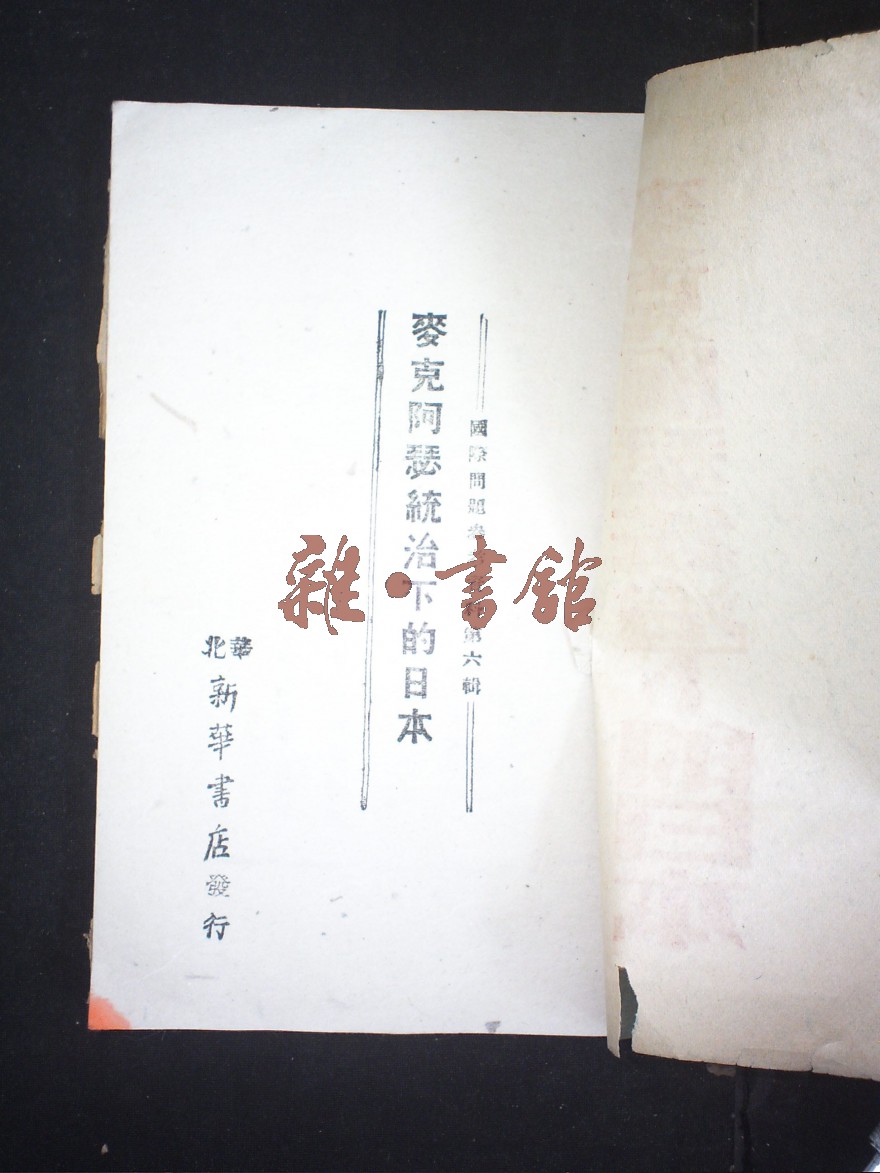 國際問題參考資料第六輯
麥克阿瑟統治下的日本
華北
新華書店發行
雜·書館